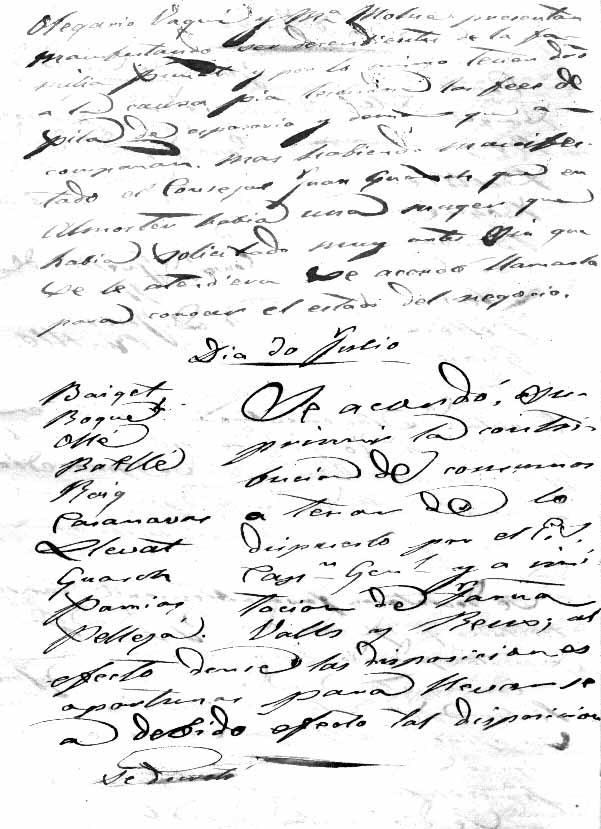 Olegario Vaqué y Mª Molné presentan
manifestando ser descendientes de la fa-
milia y por lo mismo tener dro
a la causa pia las fees de
pila de y demas que a-
compañan. mas habiendo manifes-
tado el Consejal Juan Guasch que en
Almoster habia una muger que
habia solicitado muy antes que
se le atendiera se acordó llamarla
para conocer el estado del negocio.
Dia 30 Julio
Baiget
Boquet
Ollé
Batllé
Roig
Casanovas
Llevat
Guasch
Pamies
Pellejá.
Se acordó, su-
primir la contri-
bucion de consumos
a tenor de lo
dispuesto por el
Capn Genl y a imi-
tacion de Tarrna
Valls y Reus; al
efecto las disposiciones
oportunas para llevarse
a debido efecto tal disposicion